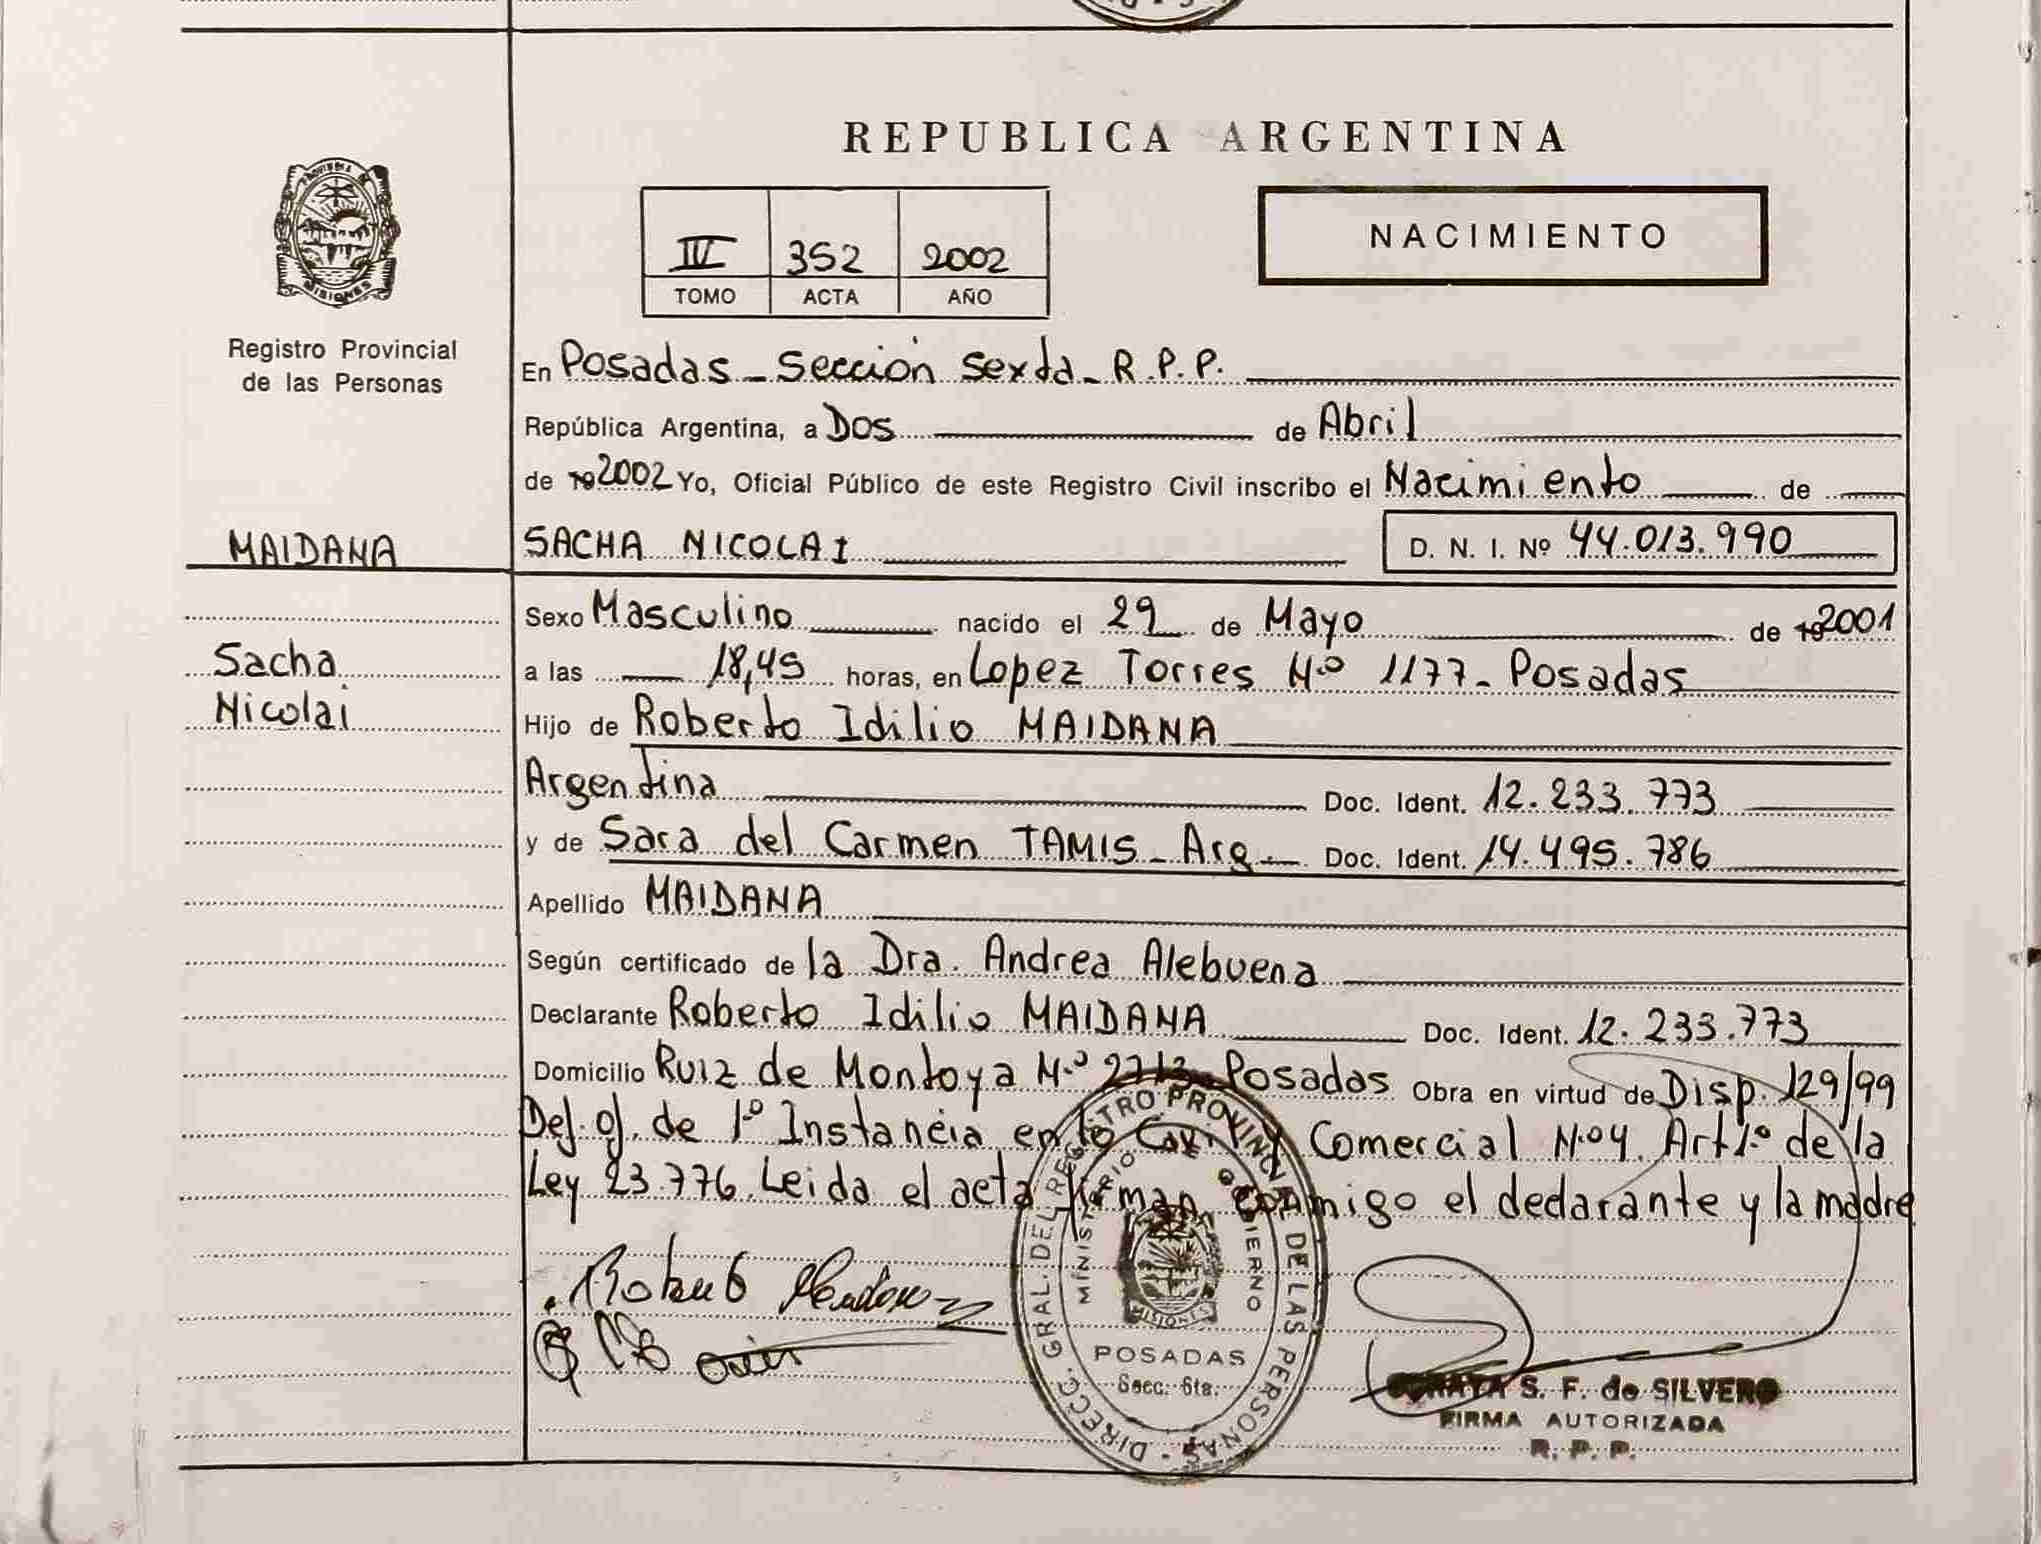 REPUBLICA ARGENTINA
PROVINCIA DE
MISIONES
Registro Provincial
de las Personas
IV 352 2002
TOMO ACTA AÑO
NACIMIENTO
En Posadas - Sección Sexta - R.P.P.
República Argentina, a Dos de Abril
de 19 2002 Yo, Oficial Público de este Registro Civil inscribo el Nacimiento de
MAIDANA
SACHA NICOLAI D. N. I. Nº 44.013.990
Sexo Masculino nacido el 29 de Mayo de 19 2001
Sacha
a las 18,45 horas, en Lopez Torres Nº 1177 - Posadas
Nicolai
Hijo de Roberto Idilio MAIDANA
Argentina Doc. Ident. 12.233.773
y de Sara del Carmen TAMIS - Arg. Doc. Ident. 14.495.786
Apellido MAIDANA
Según certificado de la Dra. Andrea Alebuena
Declarante Roberto Idilio MAIDANA Doc. Ident. 12.233.773
Domicilio Ruiz de Montoya Nº 2713 - Posadas Obra en virtud de Disp. 129/99
Def. of. de 1º Instancia en lo Civil y Comercial Nº 4. Art 1º de la
Ley 23.776. Leida el acta firman conmigo el declarante y la madre
DIRECC. GRAL. DEL REGISTRO PROVINCIAL DE LAS PERSONAS
MINISTERIO DE GOBIERNO
MISIONES
POSADAS
Secc. 6ta.
S. F. de SILVERO
FIRMA AUTORIZADA
R. P. P.